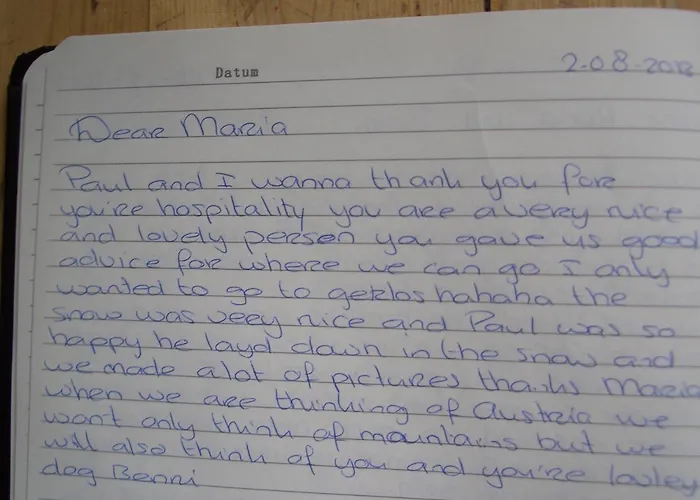 Datum
2-08-2013
Dear Maria
Paul and I wanna thank you for
you're hospitality you are a very nice
and lovely person you gave us good
advice for where we can go I only
wanted to go to getzlos hahaha the
snow was very nice and Paul was so
happy he layd down in the snow and
we made a lot of pictures thanks Maria
when we are thinking of Austria we
wont only think of mountains but we
will also think of you and you're lovley
dog Benni